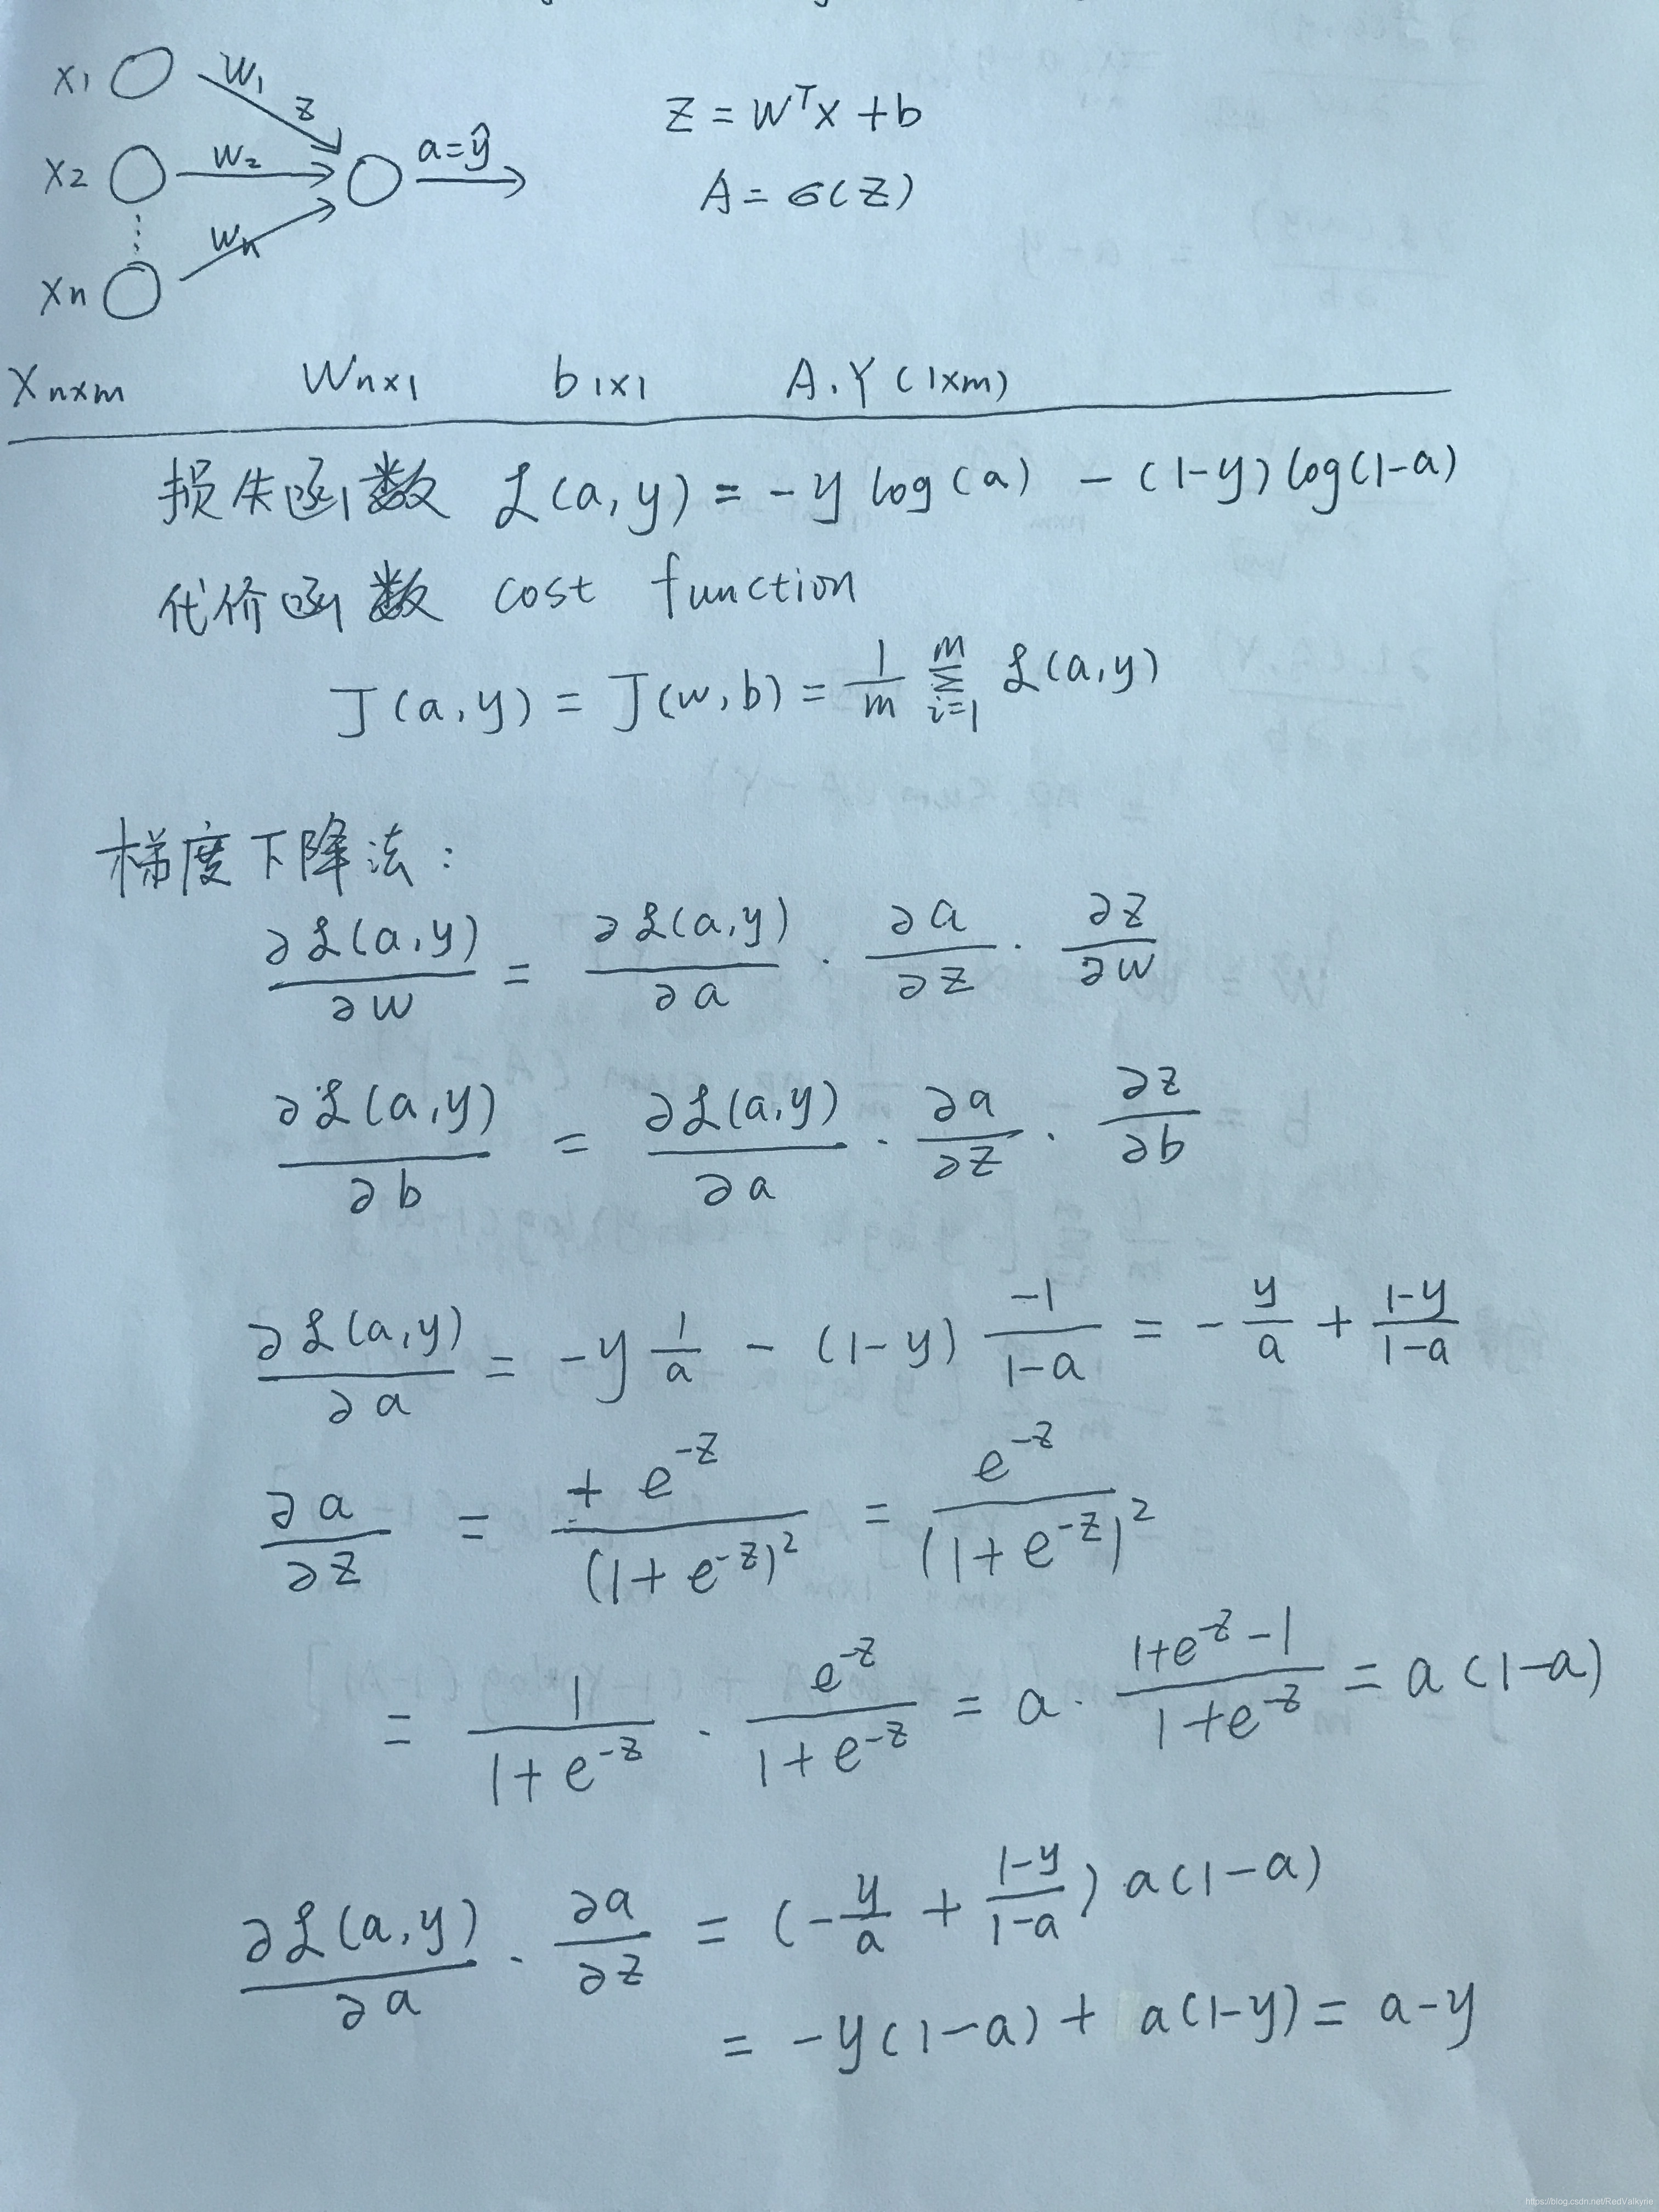 x1 w1 z
x2 w2 a=ŷ
xn wn
Z = WᵀX + b
A = σ(Z)
Xn×m Wn×1 b1×1 A.Y(1×m)
损失函数 ℒ(a,y) = -y log(a) - (1-y)log(1-a)
代价函数 cost function
J(a,y) = J(w,b) = 1/m Σ_{i=1}^{m} ℒ(a,y)
梯度下降法:
∂ℒ(a,y)/∂w = ∂ℒ(a,y)/∂a · ∂a/∂z · ∂z/∂w
∂ℒ(a,y)/∂b = ∂ℒ(a,y)/∂a · ∂a/∂z · ∂z/∂b
∂ℒ(a,y)/∂a = -y 1/a - (1-y) -1/(1-a) = - y/a + (1-y)/(1-a)
∂a/∂z = +e^{-z}/(1+e^{-z})² = e^{-z}/(1+e^{-z})²
= 1/(1+e^{-z}) · e^{-z}/(1+e^{-z}) = a · (1+e^{-z}-1)/(1+e^{-z}) = a(1-a)
∂ℒ(a,y)/∂a · ∂a/∂z = (-y/a + (1-y)/(1-a)) a(1-a)
= -y(1-a) + a(1-y) = a-y
https://blog.csdn.net/RedValkyrie